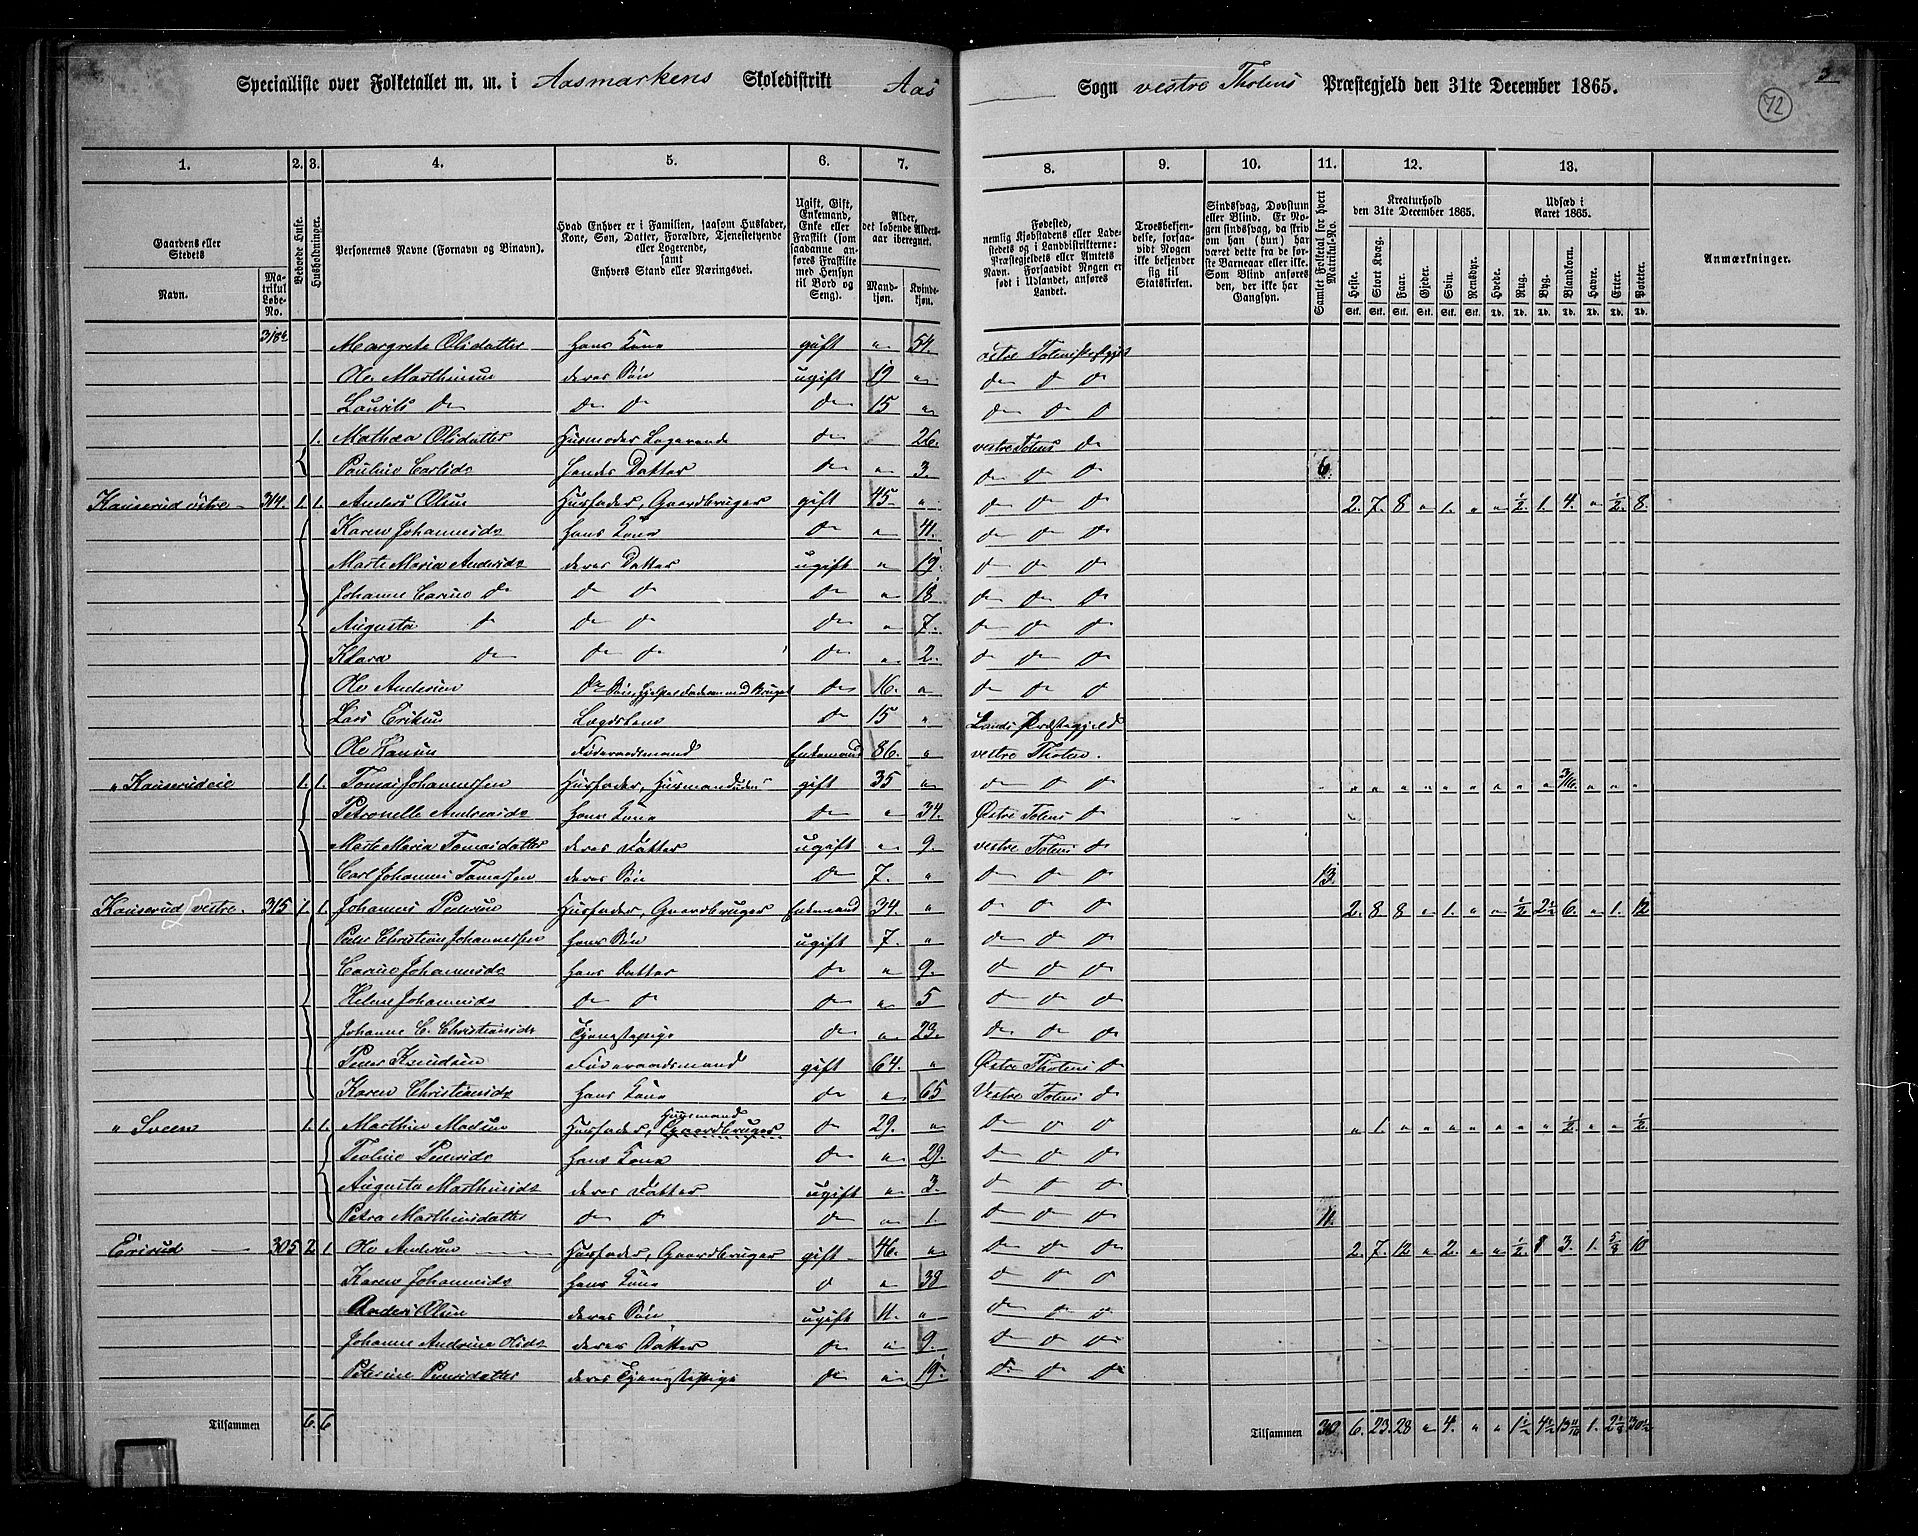 Specialliste over Folketallet m. m. i Aasmarkens Skoledistrikt Aas Sogn vestre Thotens Præstegjeld den 31te December 1865.
3
72
1. 2. 3. 4. 5. 6. 7. 8. 9. 10. 11. 12. 13.
Gaardens eller Stedets Navn.
Matrikul Løbe-No.
Beboede Huse.
Husholdninger.
Personernes Navne (Fornavn og Binavn).
Hvad Enhver er i Familien, saasom Husfader, Kone, Søn, Datter, Forældre, Tjenestetyende eller Logerende, samt Enhvers Stand eller Næringsvei.
Ugift, Gift, Enkemand, Enke eller Fraskilt (som saadanne anføres Fraskilte med Hensyn til Bord og Seng).
Alder, det løbende Aldersaar iberegnet.
Mandkjøn. Kvindekjøn.
Fødested, nemlig Kjøbstadens eller Ladestedets og i Landdistrikterne: Præstegjeldets eller Amtets Navn. Forsaavidt Nogen er født i Udlandet, anføres Landet.
Troesbekjendelse, forsaavidt Nogen ikke bekjender sig til Statskirken.
Sindssvag, Døvstum eller Blind. Er Nogen sindssvag, da skriv om han (hun) har været dette fra de første Barneaar eller ikke. Som Blind anføres den, der ikke har Gangsyn.
Samlet Folketal for hvert Matrikul-No.
Kreaturhold den 31te December 1865.
Heste. Stort Kvæg. Faar. Gjeder. Svin. Rensdyr.
Udsæd i Aaret 1865.
Hvede. Rug. Byg. Blandkorn. Havre. Erter. Poteter.
Anmærkninger.
Stk. Stk. Stk. Stk. Stk. Stk. Td. Td. Td. Td. Td. Td. Td.
Margrete Olsdatter hans Kone gift " 54.
Ole Marthinsen deres Søn ugift 19 " do do do
Laurits do do do do 15 " do do do
1. Mathea Olsdatter Husmoder Logerende do 26. vestre Totens do
Pauline Carlsd. hendes Datter do " 3. do do do 6.
Kauserud östre 314. 1. 1. Anders Olsen Husfader, Gaardbruger gift 45 " do do do 2. 7. 8 " 1. " " ½ 1. 4. " ½ 8.
Karen Johannesd. hans Kone do " 41. do do do
Marte Maria Andersd. deres Datter ugift " 19. do do do
Johanne Carine do do do do " 18 do do do
Augusta do do do do " 7. do do do
Klara do do do do " 2. do do do
Ole Andersen do Søn, hjelper Faderen med Bruget do 16. " do do do
Lars Eriksen Lægdslem do 15 " Lands Præstegjeld
Ole Hansen Föderaadsmand Enkemand 86. " vestre Thoten.
" Kauserudeie 1. 1. Tomas Johannessen Husfader, Husmand gift 35 " do do do " " " " " " " " " 3/16. " " "
Petronelle Andreasd. hans Kone do " 34. Østre Totens do
Marte Maria Tomasdatter deres Datter ugift " 9. vestre Totens do
Carl Johannes Tomassen deres Søn do 7. " do do do 13.
Kauserud vestre. 315 1. 1. Johannes Pedersen Husfader, Gaardbruger Enkemand 34. " do do do 2. 8. 8 " 1. " " ½ 2½ 6. " 1. 12
Peder Christian Johannessen hans Søn ugift 7. " do do do
Carine Johannesd. hans Datter do " 9. do do do
Helene Johannesd. do do do " 5 do do do
Johanne C. Christiansd. Tjenestepige do " 23. do do do
Peder Knudsen Föderaadsmand gift 64. " Østre Thotens do
Karen Christiansd. hans Kone do " 65 Vestre Totens do
" Sveen 1. 1. Marthin Madsen Husfader, Gaardbruger Husmand do 29. " do do do " 1. " " " " " " " ½. " " ½.
Peoline Pedersd. hans Kone do " 29. do do do
Augusta Marthinsd. deres Datter ugift " 3. do do do
Petra Marthinsdatter do do do " 1. do do do 11.
305 2. 1 Ole Andersen Husfader, Gaardbruger gift 46. " do do do 2. 7. 12 " 2. " " ½ 3. 1. 10
Karen Johannesd. hans Kone do " 38 do do do
Anders Olsen deres Søn ugift 11. " do do do
Johanne Andrine Olsd. deres Datter do " 9. do do do
Peterine deres Tjenestepige do " 19. do do do
Tilsammen 6. 6 Tilsammen 30. 6. 23. 28 " 4. " " 1½ 4½ 1. 30½